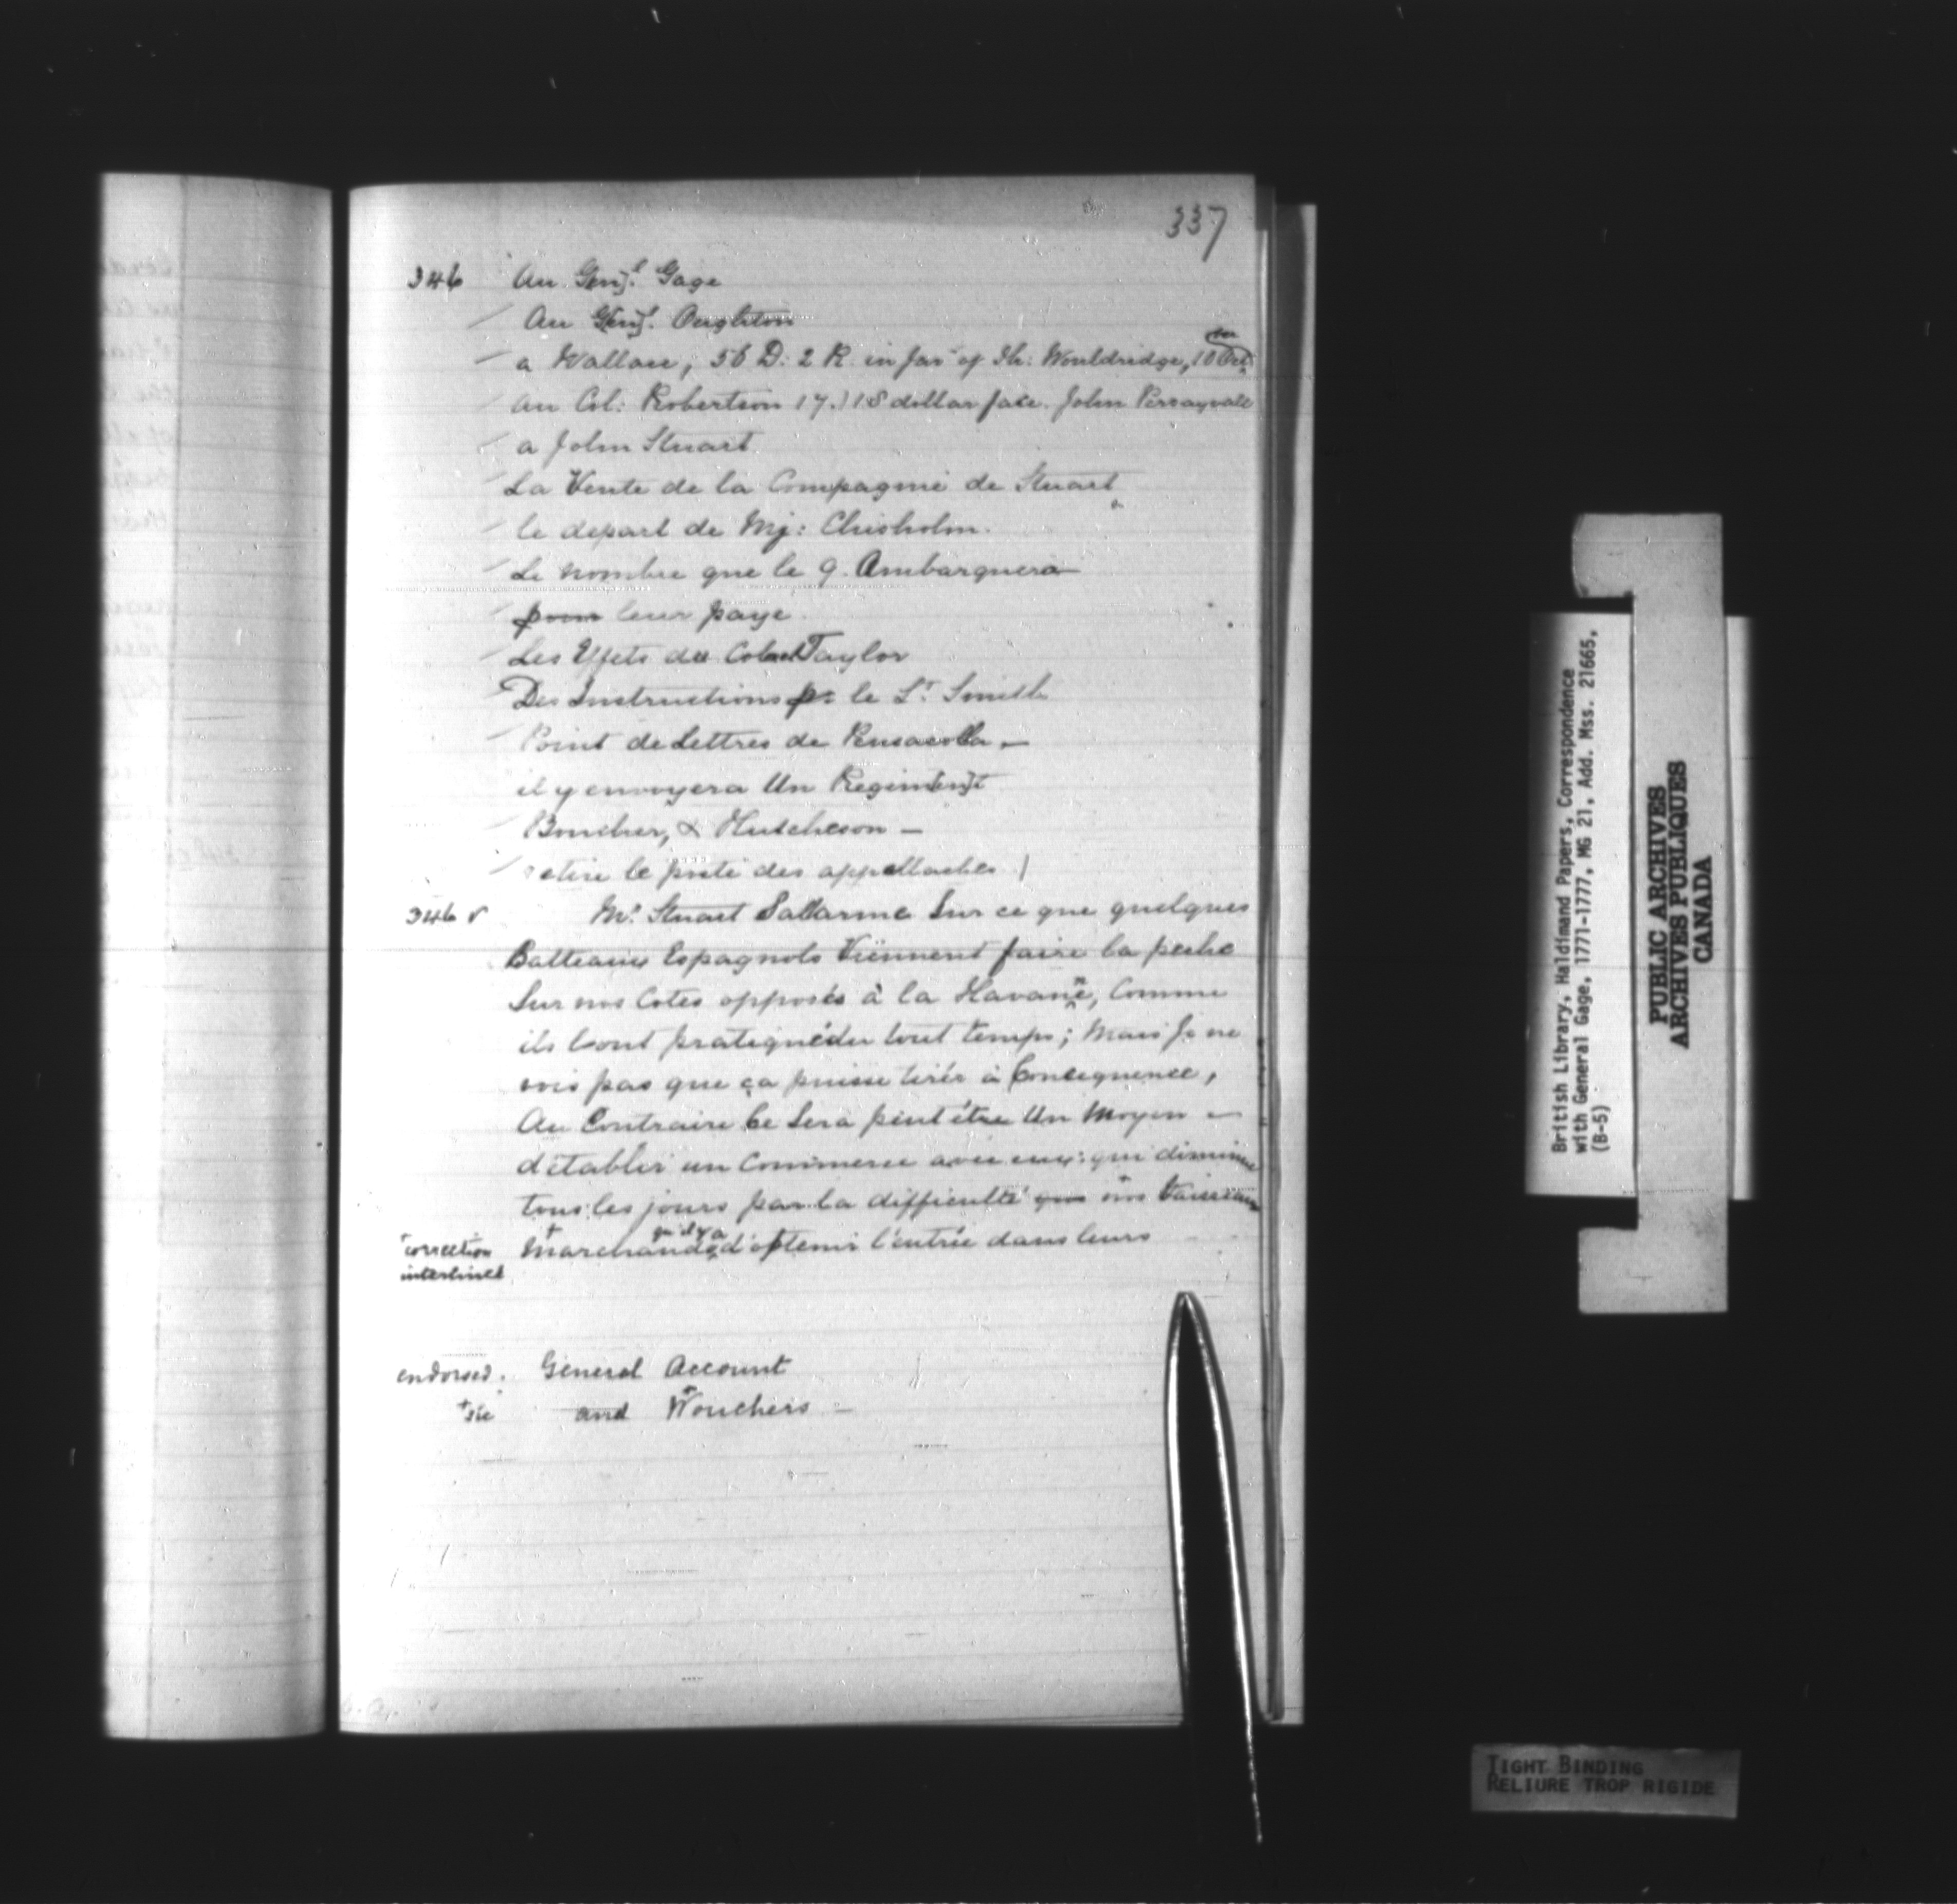 337
346 Au Genl. Gage
Au Genl. Oughton
a Wallace, 56 D: 2 R. in favr of Th: Wouldridge, 10 Oct:
au Col: Robertson 17.) 18 dollar face. John Persayvall
a John Stuart
La Vente de la Compagnie de Stuart
le depart de Mj: Chisholm.
Le nombre que le g. Ambarquera
pour leur paye
Les Effets du Colonel Taylor
Des Instructions pr le Lt. Smith
Point de Lettres de Pensacolla. —
il y envoyera Un Regiment
Boucher, & Hutcheson —
retire le poste des appallaches
346 v Mr. Stuart Sallarme Sur ce que quelques
Batteaux Espagnols Viennent faire la peche
Sur nos Cotes opposés à la Havanne, Comme
ils l'ont pratiqué du tout temps; Mais Je ne
vois pas que ça puisse tirér à Consequence,
Au Contraire Ce Sera peut être Un Moyen
d'établir un Commerce avec eux: qui diminue
tous les jours par la difficulté que nos Vaisseaux
qu'il y a
+correction Marchands d'obtenir l'entrée dans leurs
interlined
endorsed. General Account
+sic and Wouchers —
British Library, Haldimand Papers, Correspondence
with General Gage, 1771-1777, MG 21, Add. Mss. 21665,
(B-5)
PUBLIC ARCHIVES
ARCHIVES PUBLIQUES
CANADA
TIGHT BINDING
RELIURE TROP RIGIDE